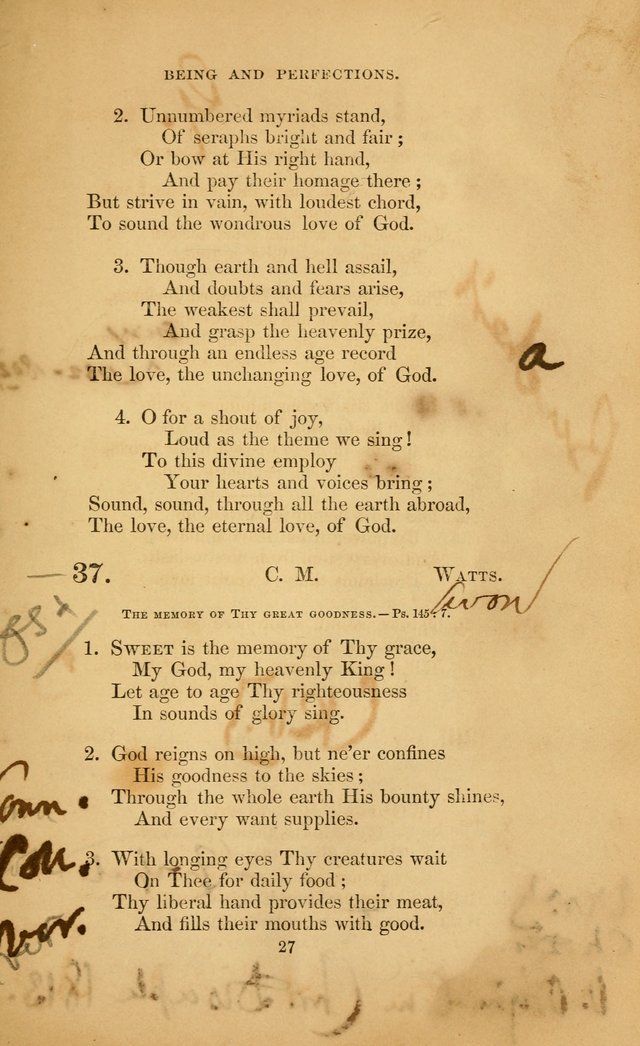 BEING AND PERFECTIONS.
2. Unnumbered myriads stand,
Of seraphs bright and fair ;
Or bow at His right hand,
And pay their homage there ;
But strive in vain, with loudest chord,
To sound the wondrous love of God.
3. Though earth and hell assail,
And doubts and fears arise,
The weakest shall prevail,
And grasp the heavenly prize,
And through an endless age record
The love, the unchanging love, of God.
a
4. O for a shout of joy,
Loud as the theme we sing !
To this divine employ
Your hearts and voices bring ;
Sound, sound, through all the earth abroad,
The love, the eternal love, of God.
— 37. C. M. WATTS.
THE MEMORY OF THY GREAT GOODNESS.—Ps. 145 : 7.
Avon
1. SWEET is the memory of Thy grace,
My God, my heavenly King !
Let age to age Thy righteousness
In sounds of glory sing.
2. God reigns on high, but ne'er confines
His goodness to the skies ;
Through the whole earth His bounty shines,
And every want supplies.
3. With longing eyes Thy creatures wait
On Thee for daily food ;
Thy liberal hand provides their meat,
And fills their mouths with good.
27